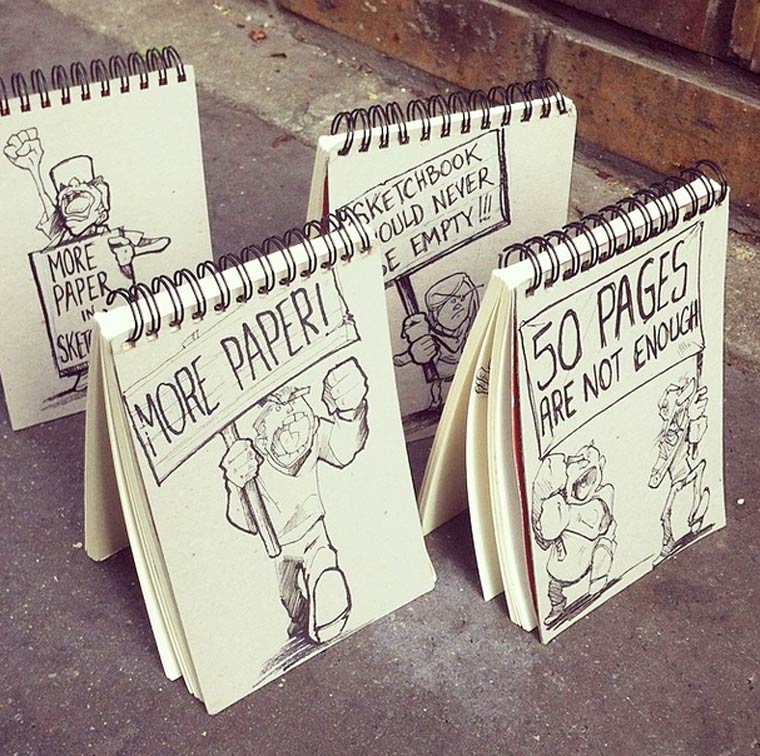 MORE
PAPER
IN
SKET
SKETCHBOOK
OULD NEVER
BE EMPTY!!!
¡MORE PAPER!
50 PAGES
ARE NOT ENOUGH